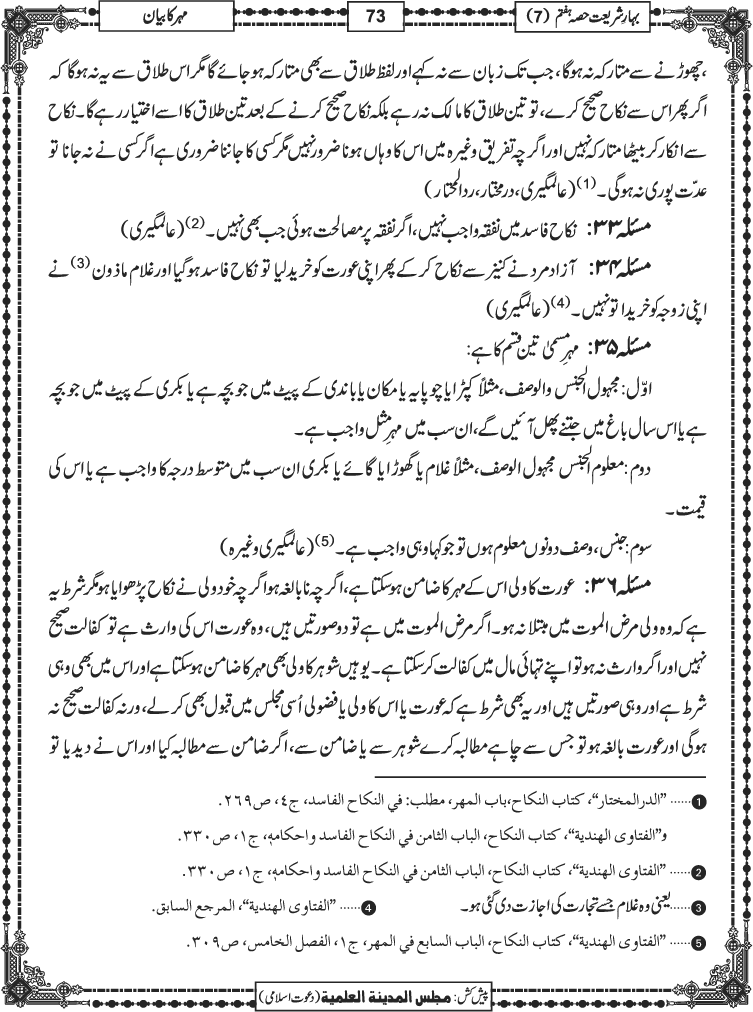 بہارِ شریعت حصہ ہفتم (7)
73
مہر کا بیان
،چھوڑنے سے متارکہ نہ ہوگا، جب تک زبان سے نہ کہے اور لفظ طلاق سے بھی متارکہ ہو جائے گا مگر اس طلاق سے یہ نہ ہوگا کہ
اگر پھر اس سے نکاح صحیح کرے، تو تین طلاق کا مالک نہ رہے بلکہ نکاح صحیح کرنے کے بعد تین طلاق کا اسے اختیار رہے گا۔ نکاح
سے انکار کر بیٹھا متارکہ نہیں اور اگرچہ تفریق وغیرہ میں اس کا وہاں ہونا ضرور نہیں مگر کسی کا جاننا ضروری ہے اگر کسی نے نہ جانا تو
عدّت پوری نہ ہوگی۔ (1) (عالمگیری، درمختار، ردالمحتار)
مسئلہ ۳۳: نکاح فاسد میں نفقہ واجب نہیں، اگر نفقہ پر مصالحت ہوئی جب بھی نہیں۔ (2) (عالمگیری)
مسئلہ ۳۴: آزاد مرد نے کنیز سے نکاح کر کے پھر اپنی عورت کو خرید لیا تو نکاح فاسد ہوگیا اور غلام ماذون (3) نے
اپنی زوجہ کو خریدا تو نہیں۔ (4) (عالمگیری)
مسئلہ ۳۵: مہرِ مسمّٰی تین قسم کا ہے:
اوّل: مجہول الجنس والوصف، مثلاً کپڑا یا چوپایہ یا مکان یا باندی کے پیٹ میں جو بچہ ہے یا بکری کے پیٹ میں جو بچہ
ہے یا اس سال باغ میں جتنے پھل آئیں گے، ان سب میں مہرِ مثل واجب ہے۔
دوم: معلوم الجنس مجہول الوصف، مثلاً غلام یا گھوڑا یا گائے یا بکری ان سب میں متوسط درجہ کا واجب ہے یا اس کی
قیمت۔
سوم: جنس، وصف دونوں معلوم ہوں تو جو کہا وہی واجب ہے۔ (5) (عالمگیری وغیرہ)
مسئلہ ۳۶: عورت کا ولی اس کے مہر کا ضامن ہو سکتا ہے، اگرچہ نابالغہ ہو اگرچہ خود ولی نے نکاح پڑھوایا ہو مگر شرط یہ
ہے کہ وہ ولی مرض الموت میں مبتلا نہ ہو۔ اگر مرض الموت میں ہے تو دو صورتیں ہیں، وہ عورت اس کی وارث ہے تو کفالت صحیح
نہیں اور اگر وارث نہ ہو تو اپنے تہائی مال میں کفالت کر سکتا ہے۔ یوہیں شوہر کا ولی بھی مہر کا ضامن ہو سکتا ہے اور اس میں بھی وہی
شرط ہے اور وہی صورتیں ہیں اور یہ بھی شرط ہے کہ عورت یا اس کا ولی یا فضولی اُسی مجلس میں قبول بھی کر لے، ورنہ کفالت صحیح نہ
ہوگی اور عورت بالغہ ہو تو جس سے چاہے مطالبہ کرے شوہر سے یا ضامن سے، اگر ضامن سے مطالبہ کیا اور اس نے دیدیا تو
1 ...... ”الدرالمختار“، كتاب النكاح،باب المهر، مطلب: في النكاح الفاسد، ج٤، ص٢٦٩.
و”الفتاوى الهندية“، كتاب النكاح، الباب الثامن في النكاح الفاسد واحكامہٖ، ج١، ص٣٣٠.
2 ...... ”الفتاوى الهندية“، كتاب النكاح، الباب الثامن في النكاح الفاسد واحكامہٖ، ج١، ص٣٣٠.
3 ...... یعنی وہ غلام جسے تجارت کی اجازت دی گئی ہو۔ 4 ...... ”الفتاوى الهندية“، المرجع السابق.
5 ...... ”الفتاوى الهندية“، كتاب النكاح، الباب السابع في المهر، ج١، الفصل الخامس، ص٣٠٩.
پیش کش: مجلس المدينة العلمية (دعوتِ اسلامی)